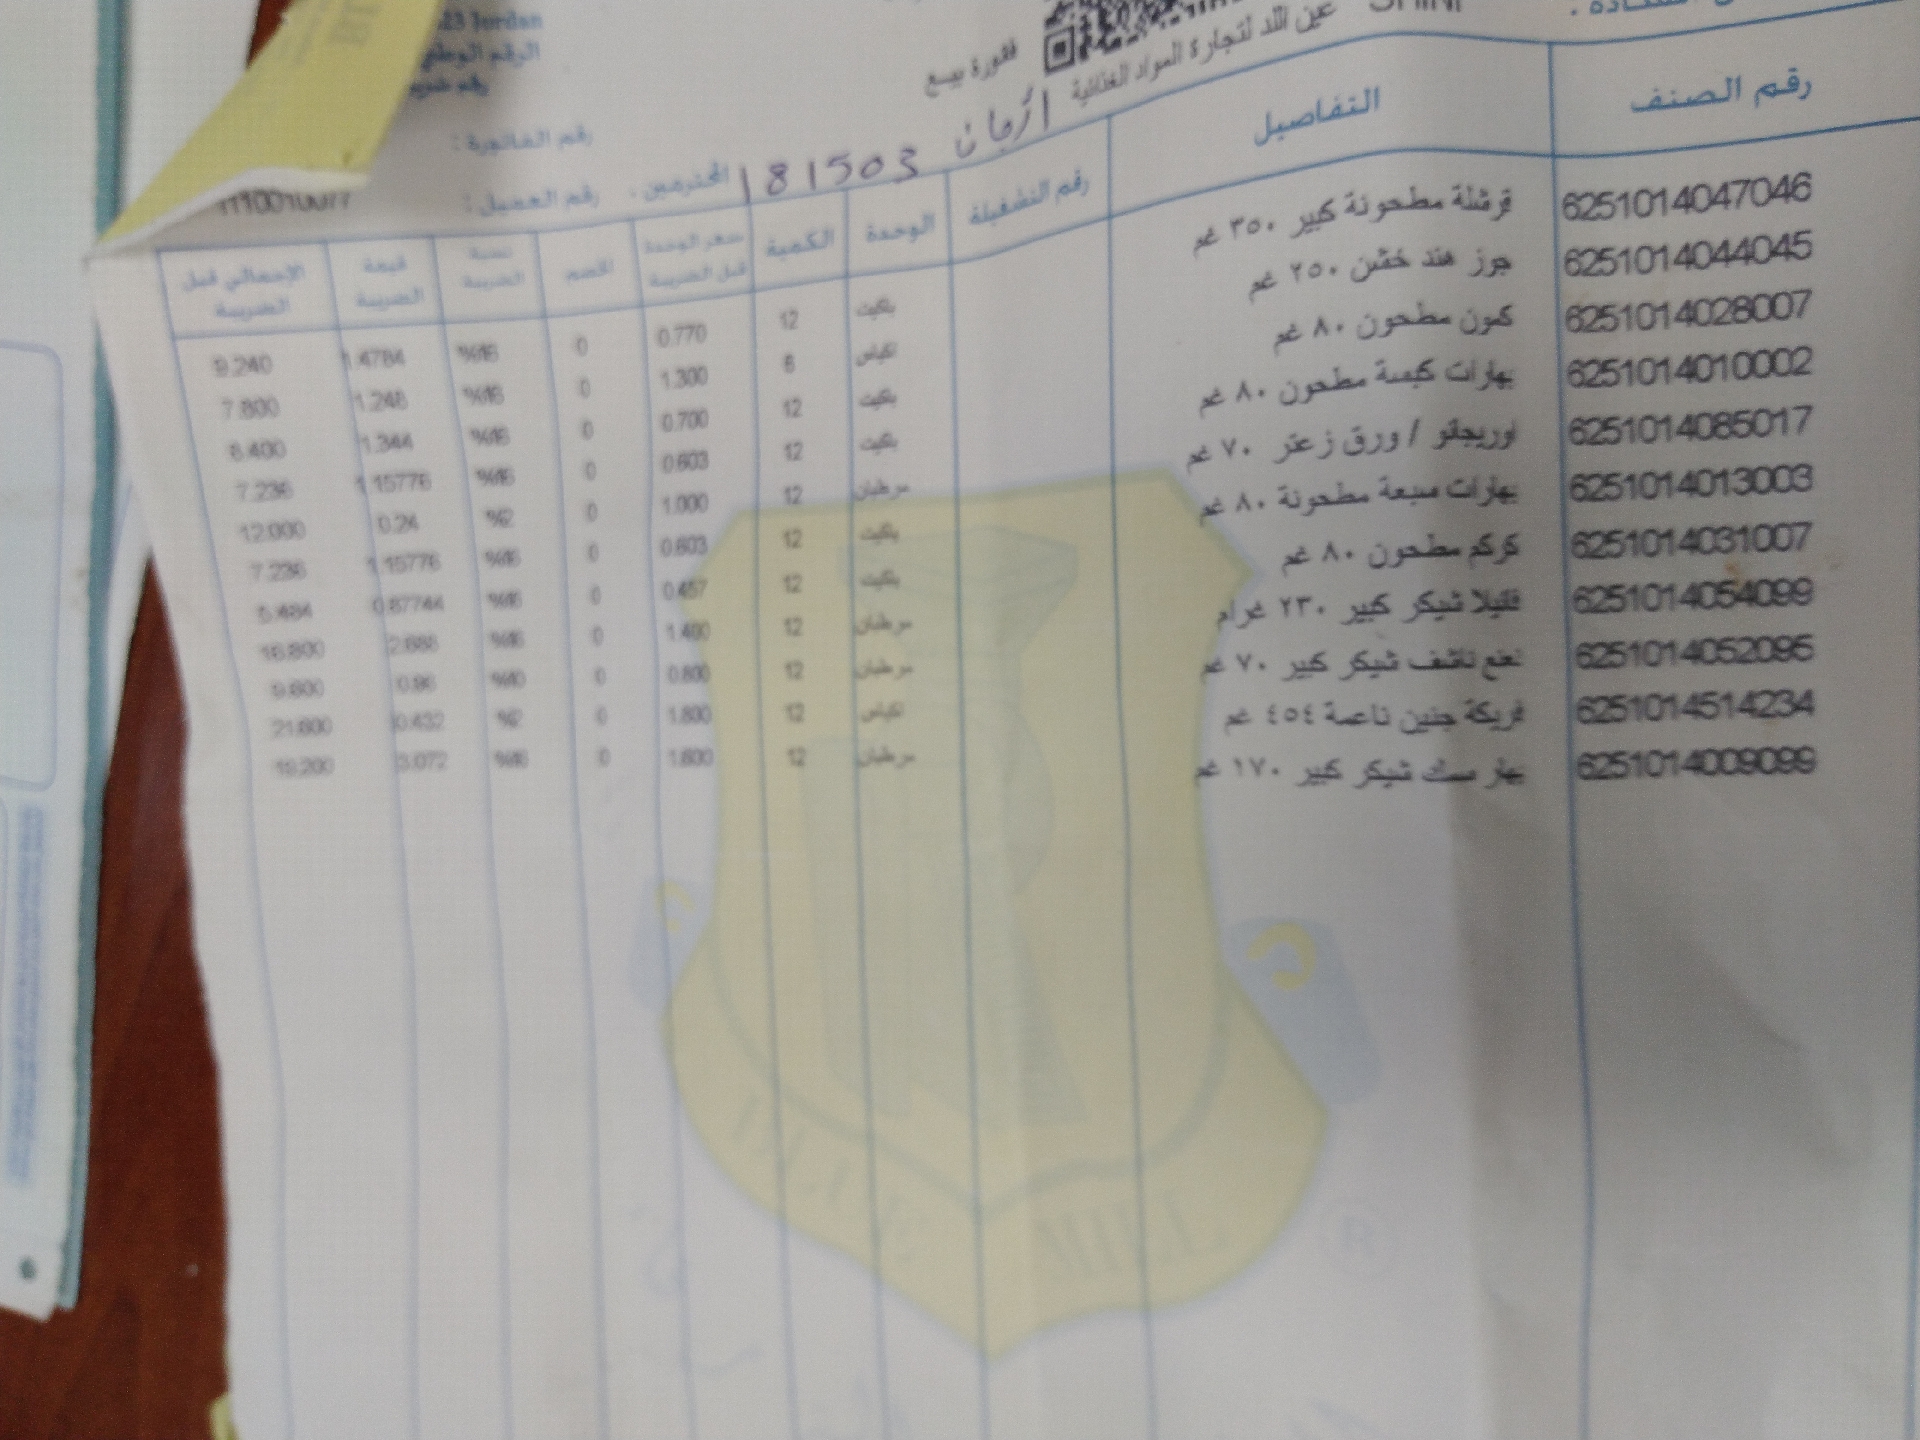 SHINI
عين الله لتجارة المواد الغذائية
فاتورة بيع
23 Jordan
الرقم الوطني
رقم الفاتورة :
أرجان 181503
المحترمين . رقم العميل :
1110010077
رقم الصنف التفاصيل رقم التشغيلة الوحدة الكمية سعر الوحدة قبل الضريبة الخصم نسبة الضريبة قيمة الضريبة الإجمالي قبل الضريبة
6251014047046 قرشلة مطحونة كبير ٣٥٠ غم باكيت 12 0.770 0 %16 1.4784 9.240
6251014044045 جوز هند خشن ٢٥٠ غم اكياس 6 1.300 0 %16 1.248 7.800
6251014028007 كمون مطحون ٨٠ غم باكيت 12 0.700 0 %16 1.344 8.400
6251014010002 بهارات كبسة مطحون ٨٠ غم باكيت 12 0.603 0 %16 1.15776 7.236
6251014085017 اوريجانو / ورق زعتر ٧٠ غم مرطبان 12 1.000 0 %2 0.24 12.000
6251014013003 بهارات سبعة مطحونة ٨٠ غم باكيت 12 0.603 0 %16 1.15776 7.236
6251014031007 كركم مطحون ٨٠ غم باكيت 12 0.457 0 %16 0.87744 5.484
6251014054099 فانيلا شيكر كبير ٢٣٠ غرام مرطبان 12 1.400 0 %16 2.688 16.800
6251014052095 نعنع ناشف شيكر كبير ٧٠ غم مرطبان 12 0.800 0 %10 0.96 9.600
6251014514234 فريكة جنين ناعمة ٤٥٤ غم اكياس 12 1.800 0 %2 0.432 21.600
6251014009099 بهار سمك شيكر كبير ١٧٠ غم مرطبان 12 1.600 0 %16 3.072 19.200